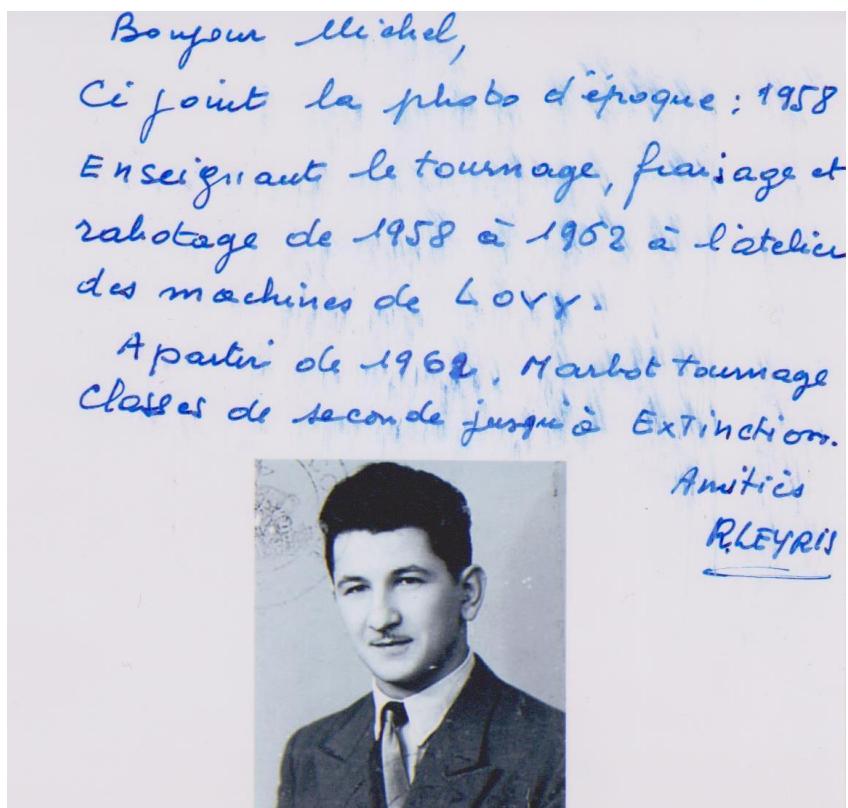 Bonjour Michel,
Ci joint la photo d'époque : 1958
Enseignant le tournage, fraisage et
rabotage de 1958 à 1962 à l'atelier
des machines de
A partir de 1962. Marbot tournage
Classes de seconde jusqu'à Extinction.
Amitiés
R.LEYRIS